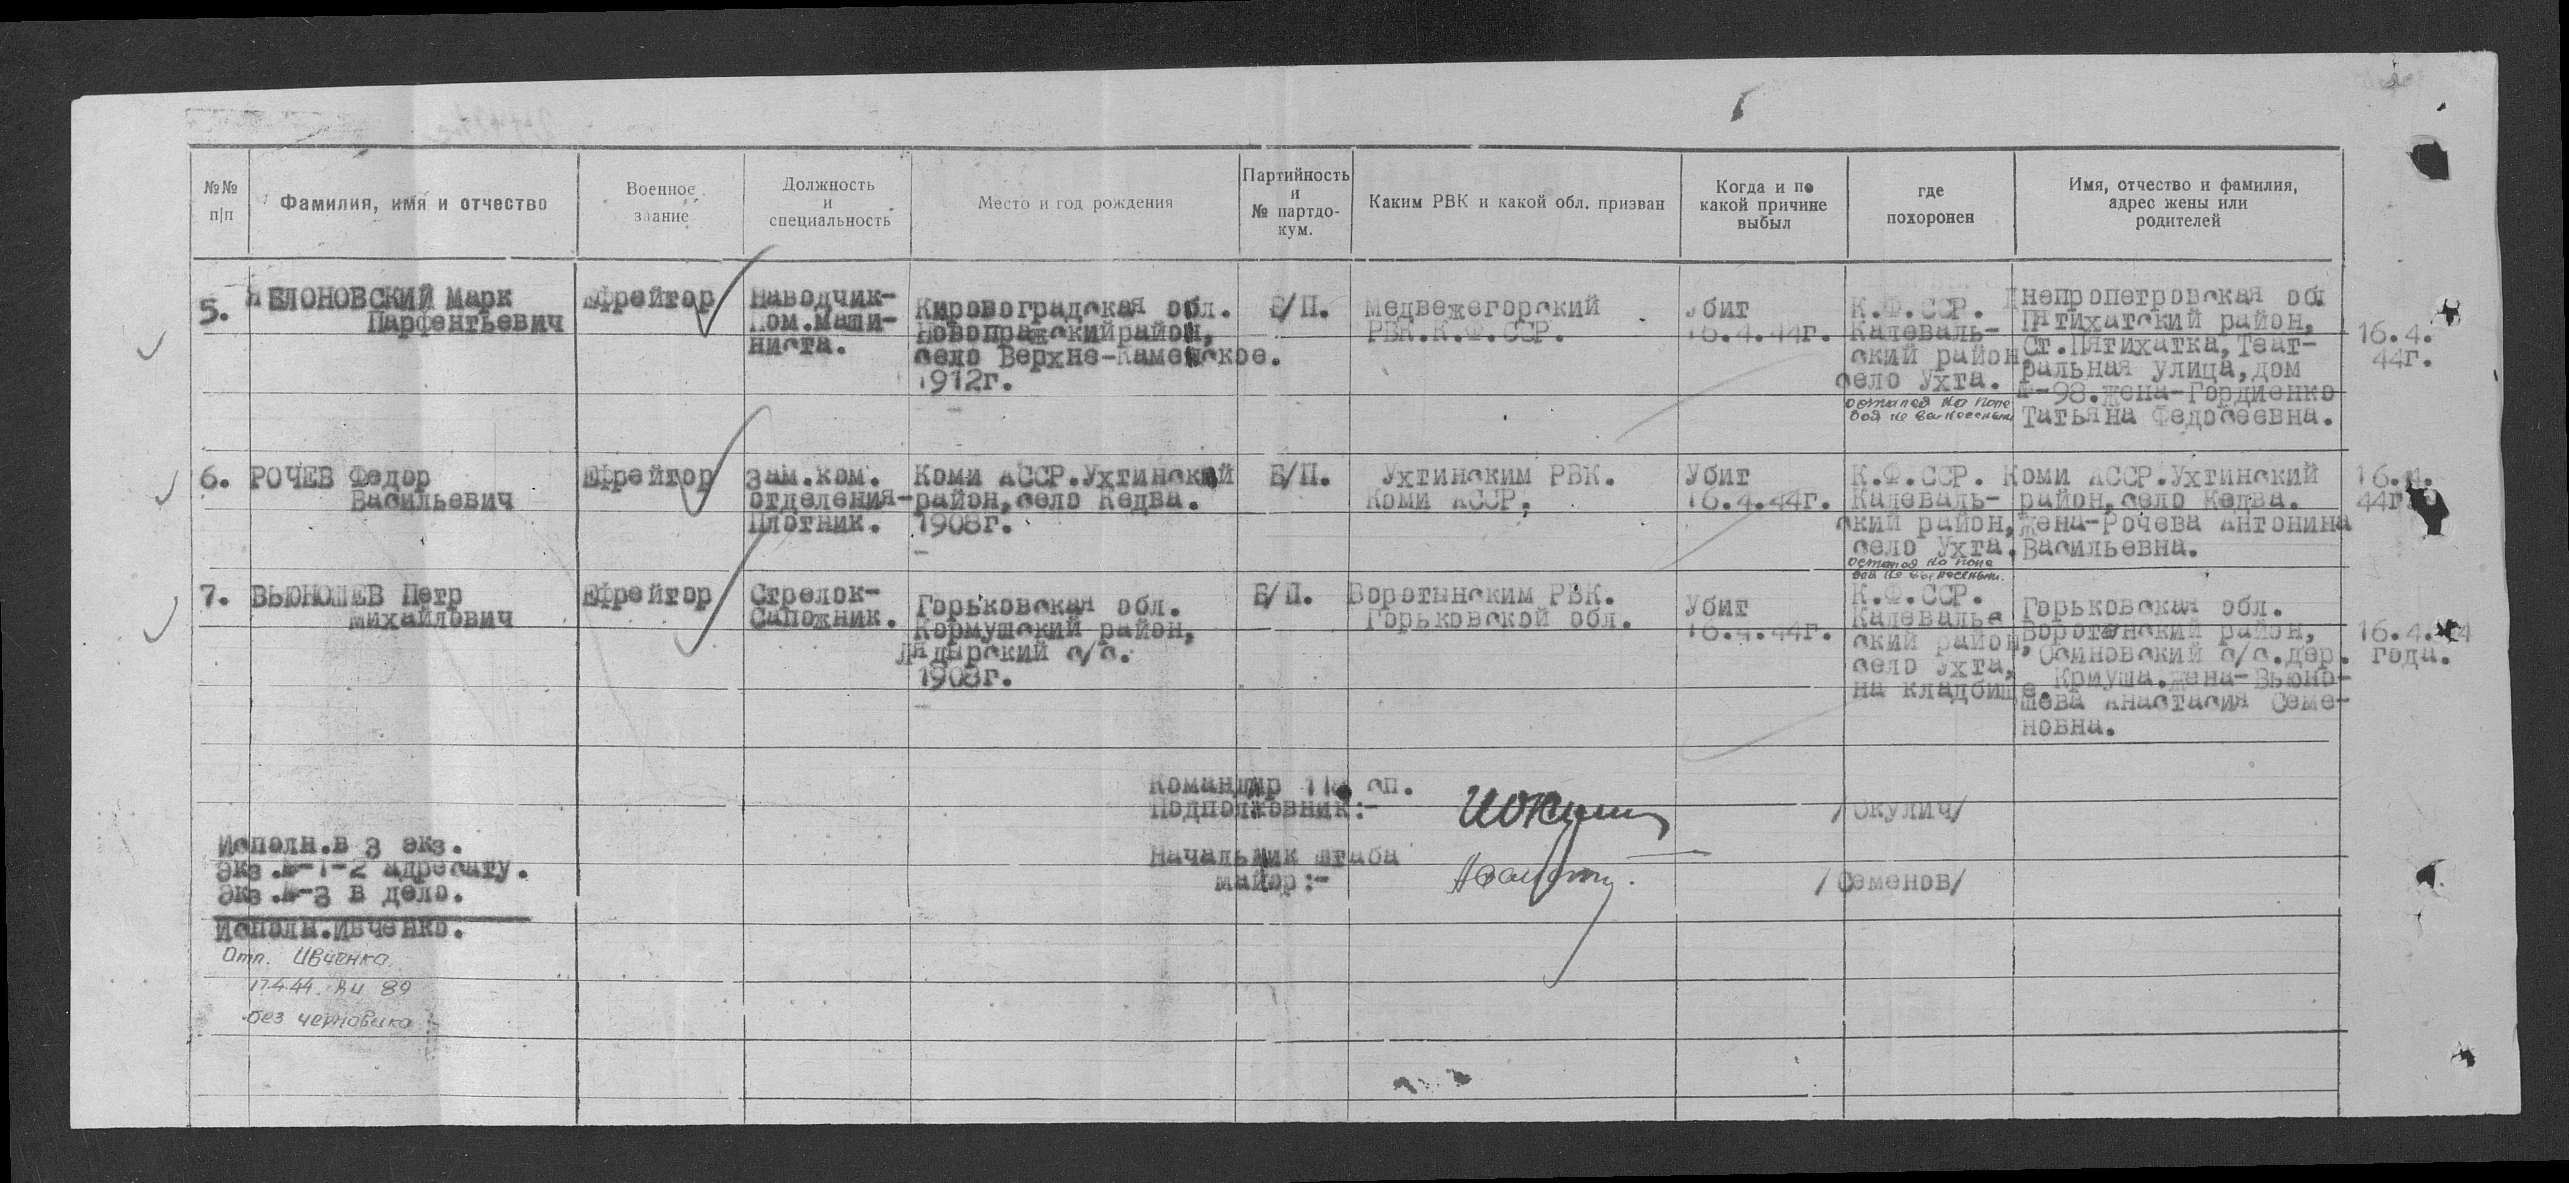 №№ п/п
Фамилия, имя и отчество
Военное звание
Должность и специальность
Место и год рождения
Партийность и № партдо-кум.
Каким РВК и какой обл. призван
Когда и по какой причине выбыл
где похоронен
Имя, отчество и фамилия, адрес жены или родителей
5.
ЕЛОНОВСКИЙ Марк
Парфентьевич
Ефрейтор
Наводчик-
Пом.маши-
ниста.
Кировоградская обл.
Новопражский район,
село Верхне-Каменское.
1912г.
Б/П.
Медвежегорский
РВК.К.Ф.ССР.
Убит
16.4.44г.
К.Ф.ССР.
Калеваль-
ский район,
село Ухта.
остался на поле
боя не вынесенным
Днепропетровская об
Пятихатский район,
Ст.Пятихатка,Теат-
ральная улица,дом
№-98.жена-Гордиенко
Татьяна Федосеевна.
16.4.
44г.
6.
РОЧЕВ Федор
Васильевич
Ефрейтор
Зам.ком.
отделения-
Плотник.
Коми АССР.Ухтинский
район,село Кедва.
1908г.
Б/П.
Ухтинским РВК.
Коми АССР.
Убит
16.4.44г.
К.Ф.ССР.
Калеваль-
ский район,
село Ухта.
остался на поле
боя не вынесеным.
Коми АССР.Ухтинский
район,село Кедва.
жена-Рочева Антонина
Васильевна.
16.4.
44г
7.
ВЬЮНОШЕВ Петр
Михайлович
Ефрейтор
Стрелок-
Сапожник.
Горьковская обл.
Кормушский район,
Лядырский с/с.
1908г.
Б/П.
Воротынским РВК.
Горьковской обл.
Убит
16.4.44г.
К.Ф.ССР.
Калевальс
ский район,
село Ухта,
на кладбище.
Горьковская обл.
Воротынский район,
Осиновский с/с.дер.
Крмуша.жена-Вьюно-
шева Анастасия Семе-
новна.
16.4.44
года.
Командир сп.
Подполковник:-
/Окулич/
Начальник штаба
майор:-
/Семенов/
Исполн.в 3 экз.
Экз.№-1-2 адресату.
Экз.№-3 в дело.
Исполн.Ивченко.
Отп. Ивченко
17.4.44. 89
без черновика